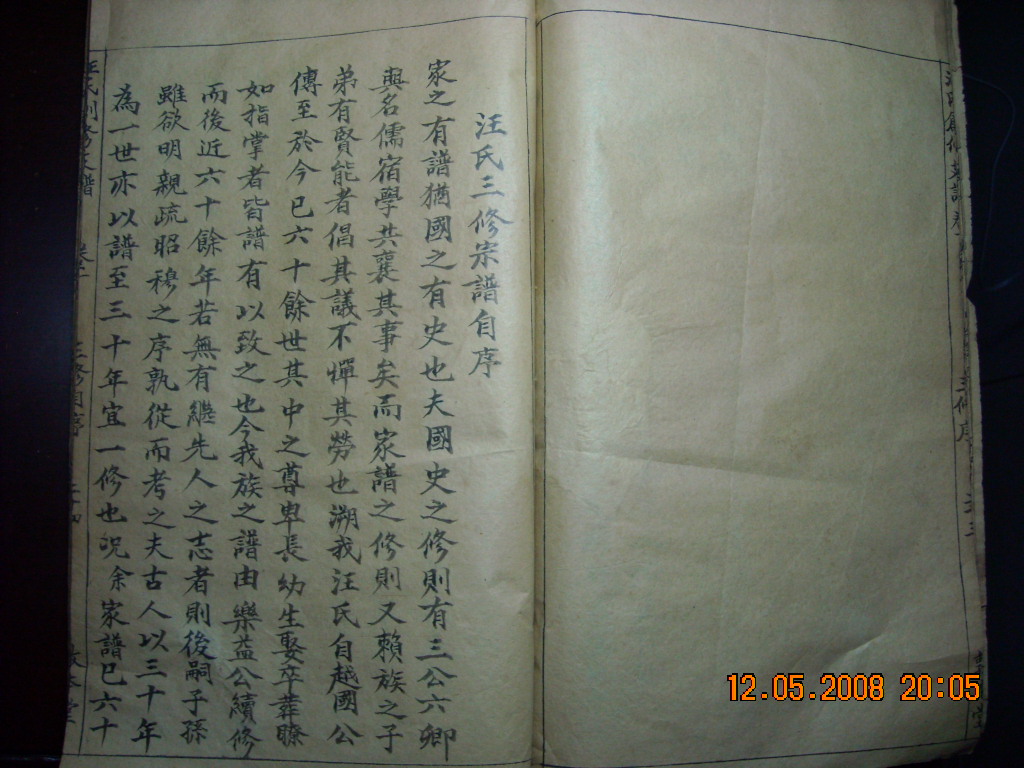 汪氏三修宗譜自序
家之有譜猶國之有史也夫國史之修則有三公六卿
與名儒宿學共襄其事矣而家譜之修則又賴族之子
弟有賢能者倡其議不憚其勞也溯我汪氏自越國公
傳至於今已六十餘世其中之尊卑長幼生娶卒葬瞭
如指掌者皆譜有以致之也今我族之譜由樂益公續修
而後近六十餘年若無有繼先人之志者則後嗣子孫
雖欲明親疏昭穆之序孰從而考之夫古人以三十年
為一世亦以譜至三十年宜一修也況余家譜已六十
三修自序
12.05.2008 20:05